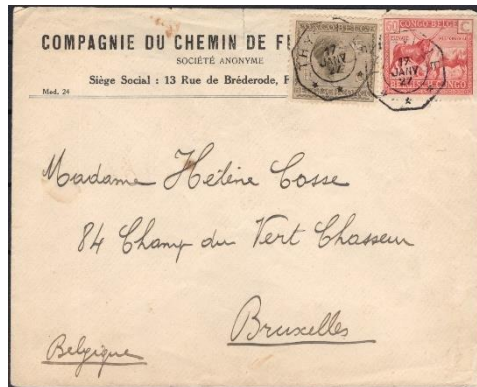 COMPAGNIE DU CHEMIN DE
SOCIÉTÉ ANONYME
Siège Social : 13 Rue de Bréderode,
Mod. 24
60 CONGO BELGE
17
JANV
27
17
JANV
27
Madame Hélène Cosse
84 Champ du Vert Chasseur
Bruxelles
Belgique